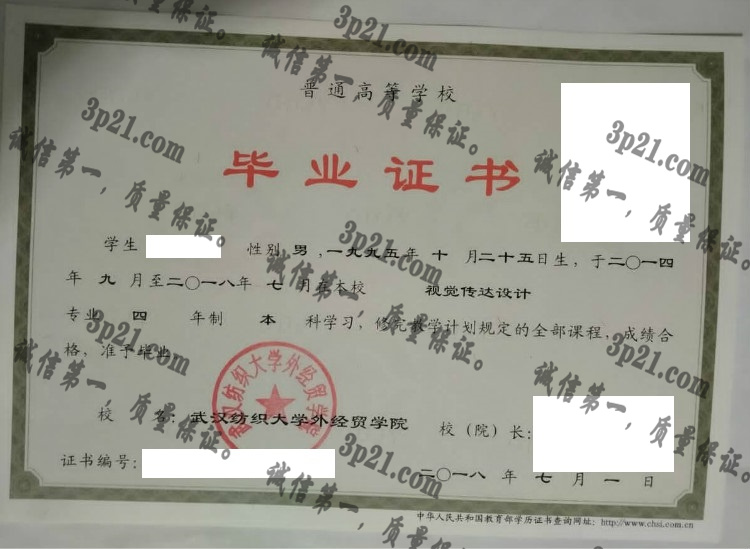 普通高等学校
毕业证书
学生 性别 男 ,一九九五年 十 月二十五日生，于二〇一四
年 九 月至二〇一八年 七 月在本校 视觉传达设计
专业 四 年制 本 科学习，修完教学计划规定的全部课程，成绩合
格，准予毕业。
校 名：武汉纺织大学外经贸学院 校（院）长：
证书编号： 二〇一八 年 七 月 一 日
中华人民共和国教育部学历证书查询网址：http://www.chsi.com.cn
武汉纺织大学外经贸学院
3p21.com
诚信第一，质量保证。
3p21.com
诚信第一，质量保证。
3p21.com
诚信第一，质量保证。
3p21.com
诚信第一，质量保证。
3p21.com
诚信第一，质量保证。
3p21.com
诚信第一，质量保证。
3p21.com
诚信第一，质量保证。
3p21.com
诚信第一，质量保证。